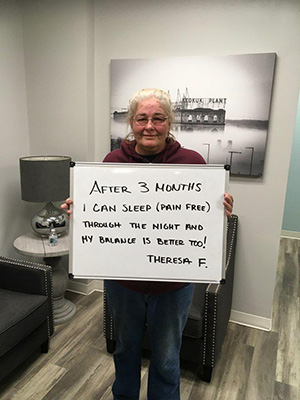 KEOKUK PLANT
AFTER 3 MONTHS
I CAN SLEEP (PAIN FREE)
THROUGH THE NIGHT AND
MY BALANCE IS BETTER TOO!
THERESA F.